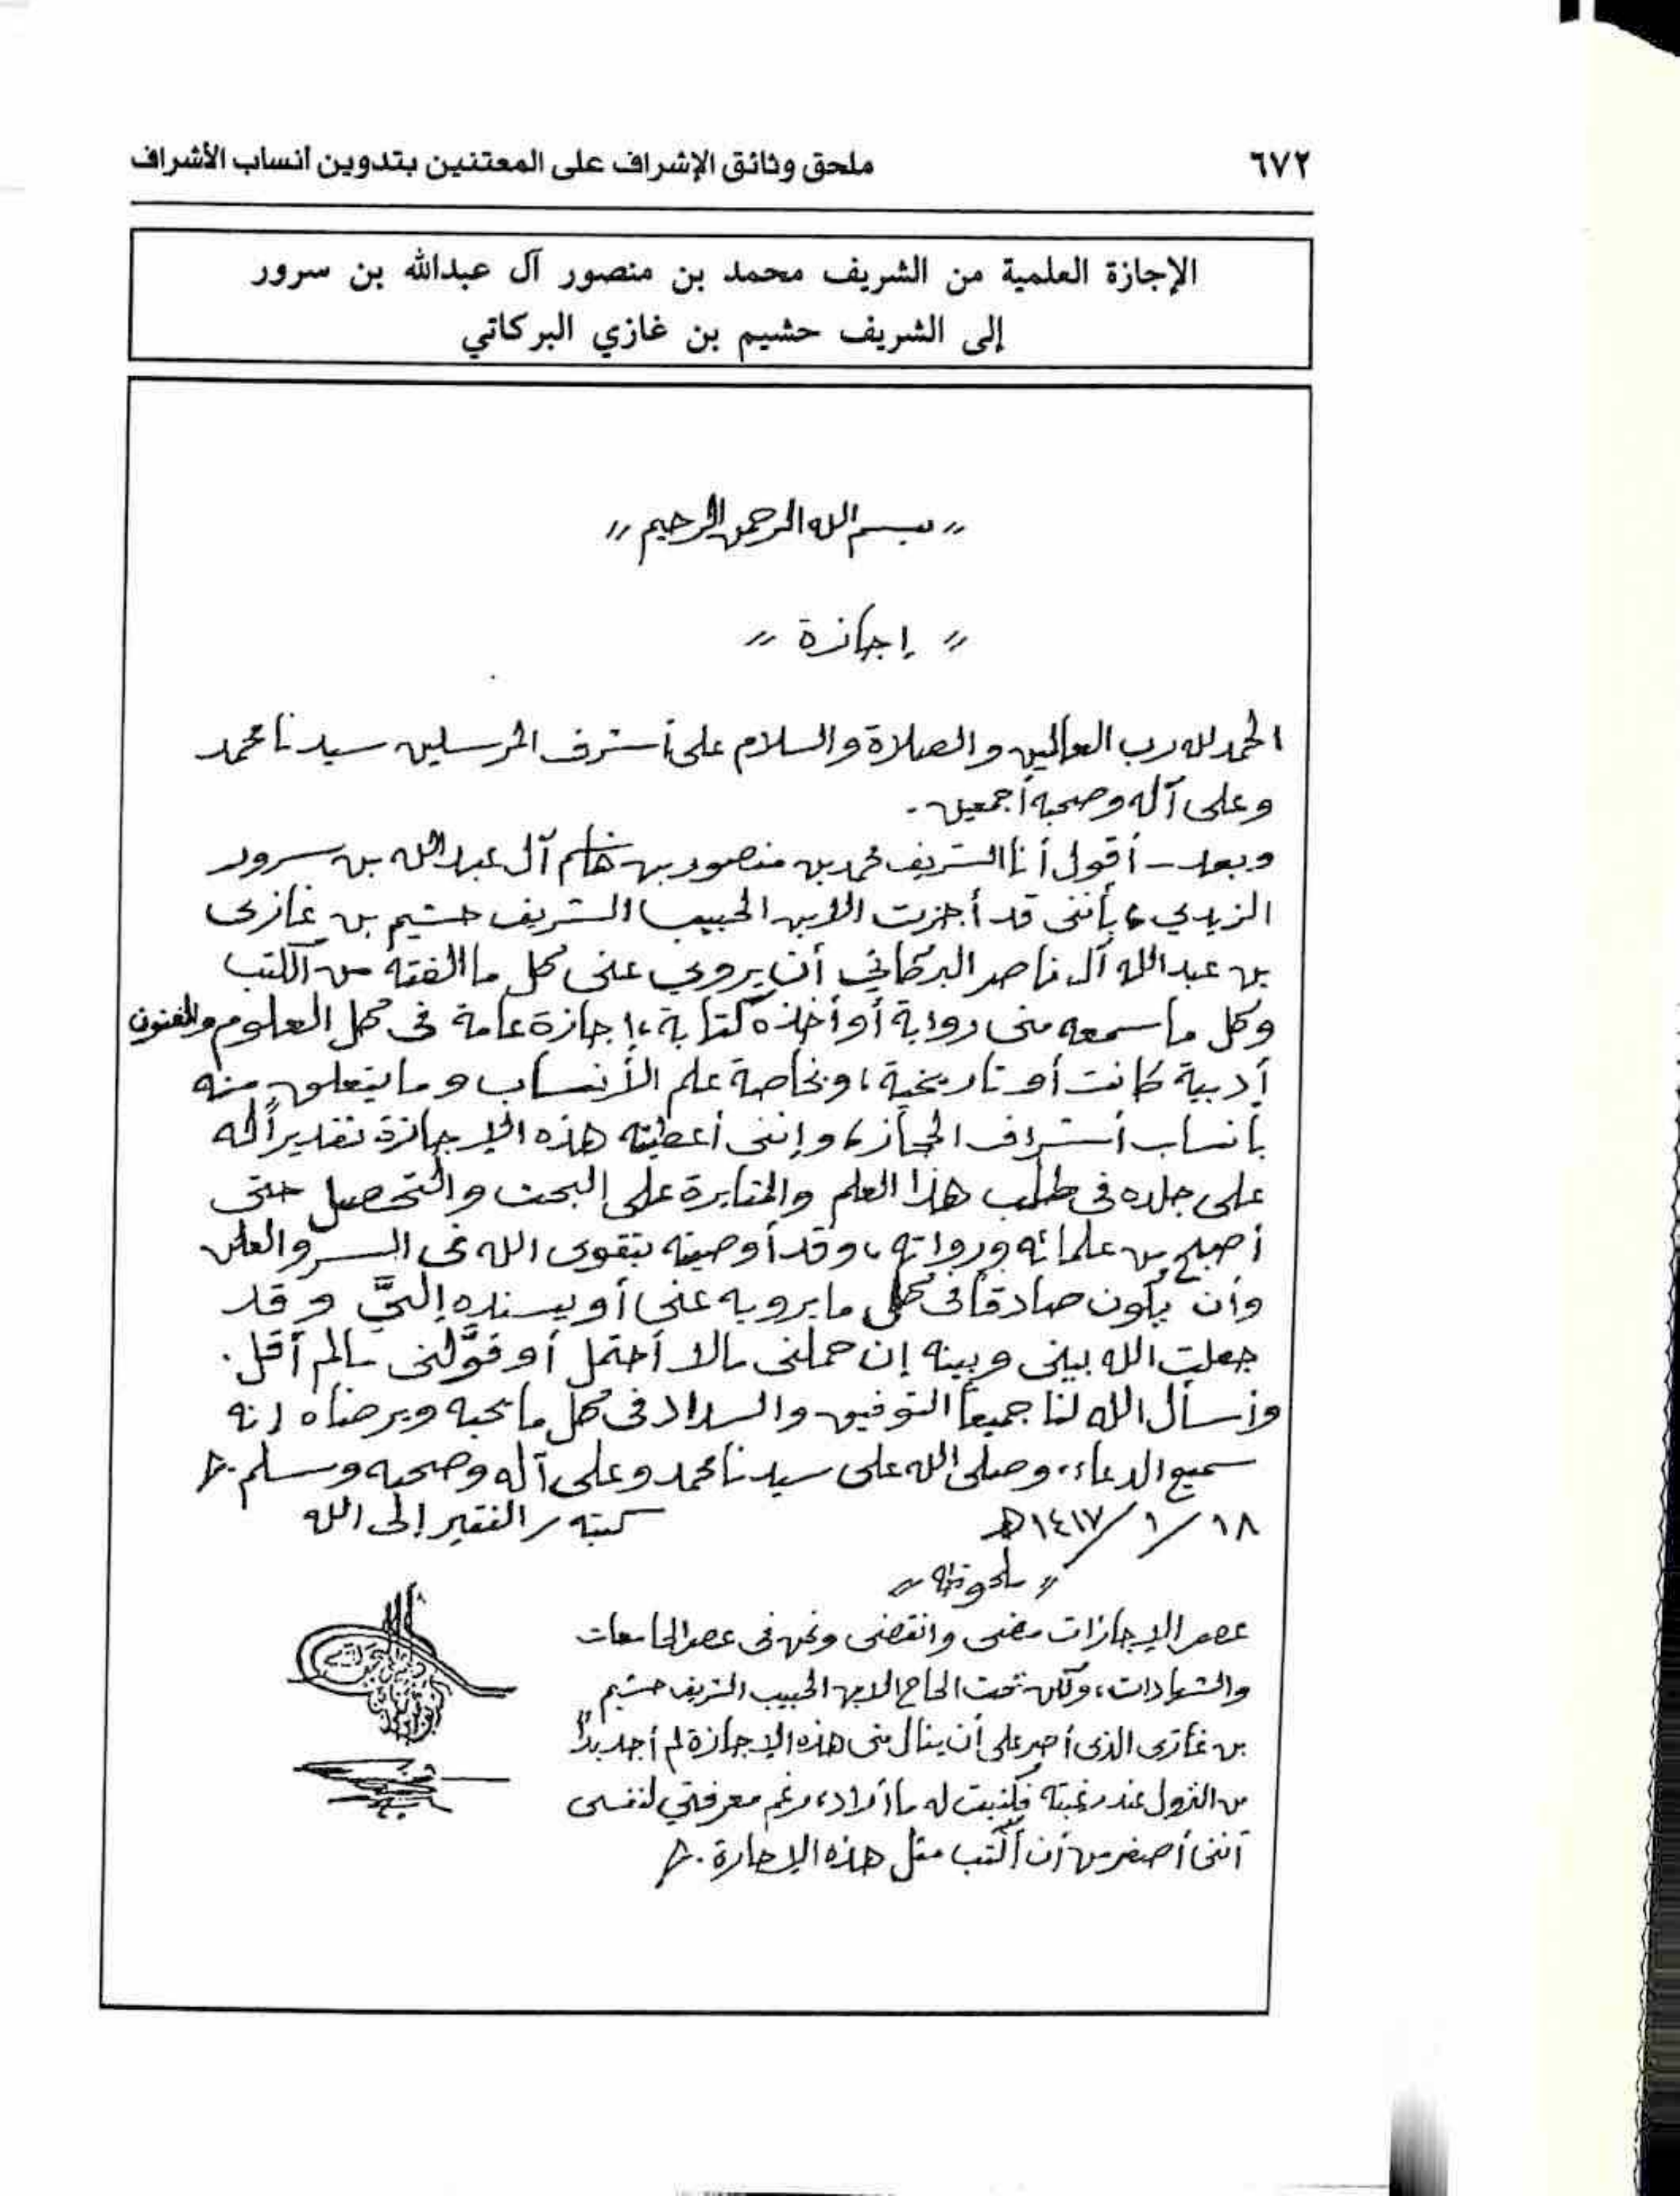 ٦٧٢
ملحق وثائق الإشراف على المعتنين بتدوين أنساب الأشراف
الإجازة العلمية من الشريف محمد بن منصور آل عبدالله بن سرور
إلى الشريف حشيم بن غازي البركاتي
" بسم الله الرحمن الرحيم "
" إجازة "
الحمد لله رب العالمين والصلاة والسلام على أشرف المرسلين سيدنا محمد
وعلى آله وصحبه أجمعين .
وبعد - أقول أنا الشريف محمد بن منصور بن هاشم آل عبدالله بن سرور
الزيدي ، بأنني قد أجزت الابن الحبيب الشريف حشيم بن غازى
بن عبدالله آل ناصر البركاتي أن يروي عنى كل ما ألفته من الكتب
وكل ما سمعه منى رواية أو أخذه كتابة ، إجازة عامة فى كل العلوم والفنون
أدبية كانت أو تاريخية ، وبخاصة علم الأنساب وما يتعلق منه
بأنساب أشراف الحجاز ، وإننى أعطيته هذه الإجازة تقديراً له
على جلده فى طلب هذا العلم والمثابرة على البحث والتحصيل حتى
أصبح من علمائه ورواته ، وقد أوصيته بتقوى الله فى السر والعلن
وأن يكون صادقاً فى كل ما يرويه عنى أو يسنده إليَّ وقد
جعلت الله بينى وبينه إن حملنى مالا أحتمل أو قوَّلنى مالم أقل .
وأسأل الله لنا جميعاً التوفيق والسداد فى كل ما يحبه ويرضاه إنه
سميع الدعاء ، وصلى الله على سيدنا محمد وعلى آله وصحبه وسلم .
١٨ / ١ / ١٤١٧ هـ
كتبه / الفقير إلى الله
" ملحوظة "
عصر الإجازات مضى وانقضى ونحن فى عصر الجامعات
والشهادات ، ولكن تحت إلحاح الابن الحبيب الشريف حشيم
بن غازى الذى أصر على أن ينال منى هذه الإجازة لم أجد بداً
من النزول عند رغبته فكتبت له ما أراد ، رغم معرفتي لنفسى
أننى أصغر من أن أكتب مثل هذه الإجازة .